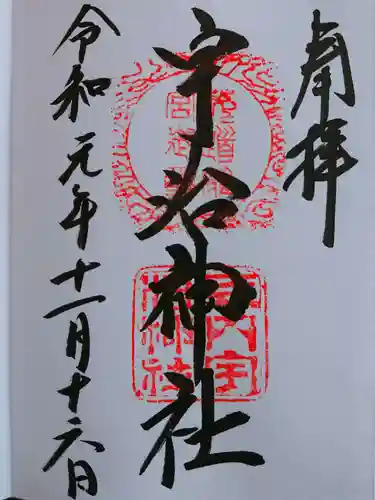 奉拝
宇治神社
令和元年十一月十六日